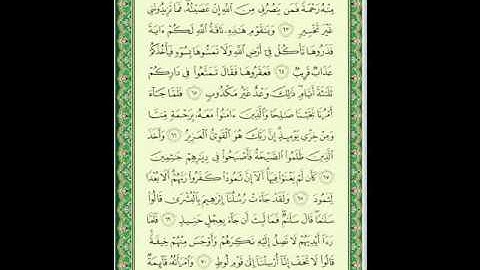 مِنْهُ رَحْمَةً فَمَن يَنصُرُنِي مِنَ ٱللَّهِ إِنْ عَصَيْتُهُۥ فَمَا تَزِيدُونَنِي
غَيْرَ تَخْسِيرٍ ٦٣ وَيَٰقَوْمِ هَٰذِهِۦ نَاقَةُ ٱللَّهِ لَكُمْ ءَايَةً
فَذَرُوهَا تَأْكُلْ فِىٓ أَرْضِ ٱللَّهِ وَلَا تَمَسُّوهَا بِسُوٓءٍ فَيَأْخُذَكُمْ
عَذَابٌ قَرِيبٌ ٦٤ فَعَقَرُوهَا فَقَالَ تَمَتَّعُوا۟ فِى دَارِكُمْ
ثَلَٰثَةَ أَيَّامٍ ذَٰلِكَ وَعْدٌ غَيْرُ مَكْذُوبٍ ٦٥ فَلَمَّا جَآءَ
أَمْرُنَا نَجَّيْنَا صَٰلِحًا وَٱلَّذِينَ ءَامَنُوا۟ مَعَهُۥ بِرَحْمَةٍ مِّنَّا
وَمِنْ خِزْىِ يَوْمِئِذٍ إِنَّ رَبَّكَ هُوَ ٱلْقَوِىُّ ٱلْعَزِيزُ ٦٦ وَأَخَذَ
ٱلَّذِينَ ظَلَمُوا۟ ٱلصَّيْحَةُ فَأَصْبَحُوا۟ فِى دِيَٰرِهِمْ جَٰثِمِينَ
٦٧ كَأَن لَّمْ يَغْنَوْا۟ فِيهَآ أَلَآ إِنَّ ثَمُودَا۟ كَفَرُوا۟ رَبَّهُمْ أَلَا بُعْدًا
لِّثَمُودَ ٦٨ وَلَقَدْ جَآءَتْ رُسُلُنَآ إِبْرَٰهِيمَ بِٱلْبُشْرَىٰ قَالُوا۟
سَلَٰمًا قَالَ سَلَٰمٌ فَمَا لَبِثَ أَن جَآءَ بِعِجْلٍ حَنِيذٍ ٦٩ فَلَمَّا
رَءَآ أَيْدِيَهُمْ لَا تَصِلُ إِلَيْهِ نَكِرَهُمْ وَأَوْجَسَ مِنْهُمْ خِيفَةً
قَالُوا۟ لَا تَخَفْ إِنَّآ أُرْسِلْنَآ إِلَىٰ قَوْمِ لُوطٍ ٧٠ وَٱمْرَأَتُهُۥ قَآئِمَةٌ